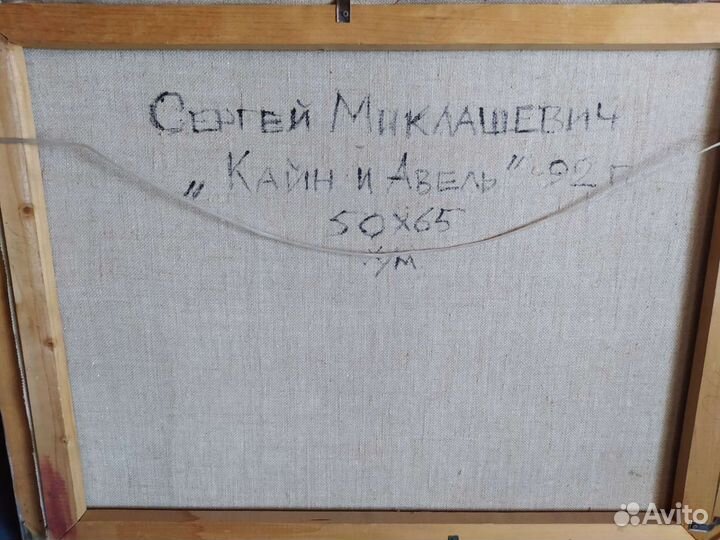 СЕРГЕЙ МИКЛАШЕВИЧ
„КАИН И АВЕЛЬ" 92 Г
50X65
Avito